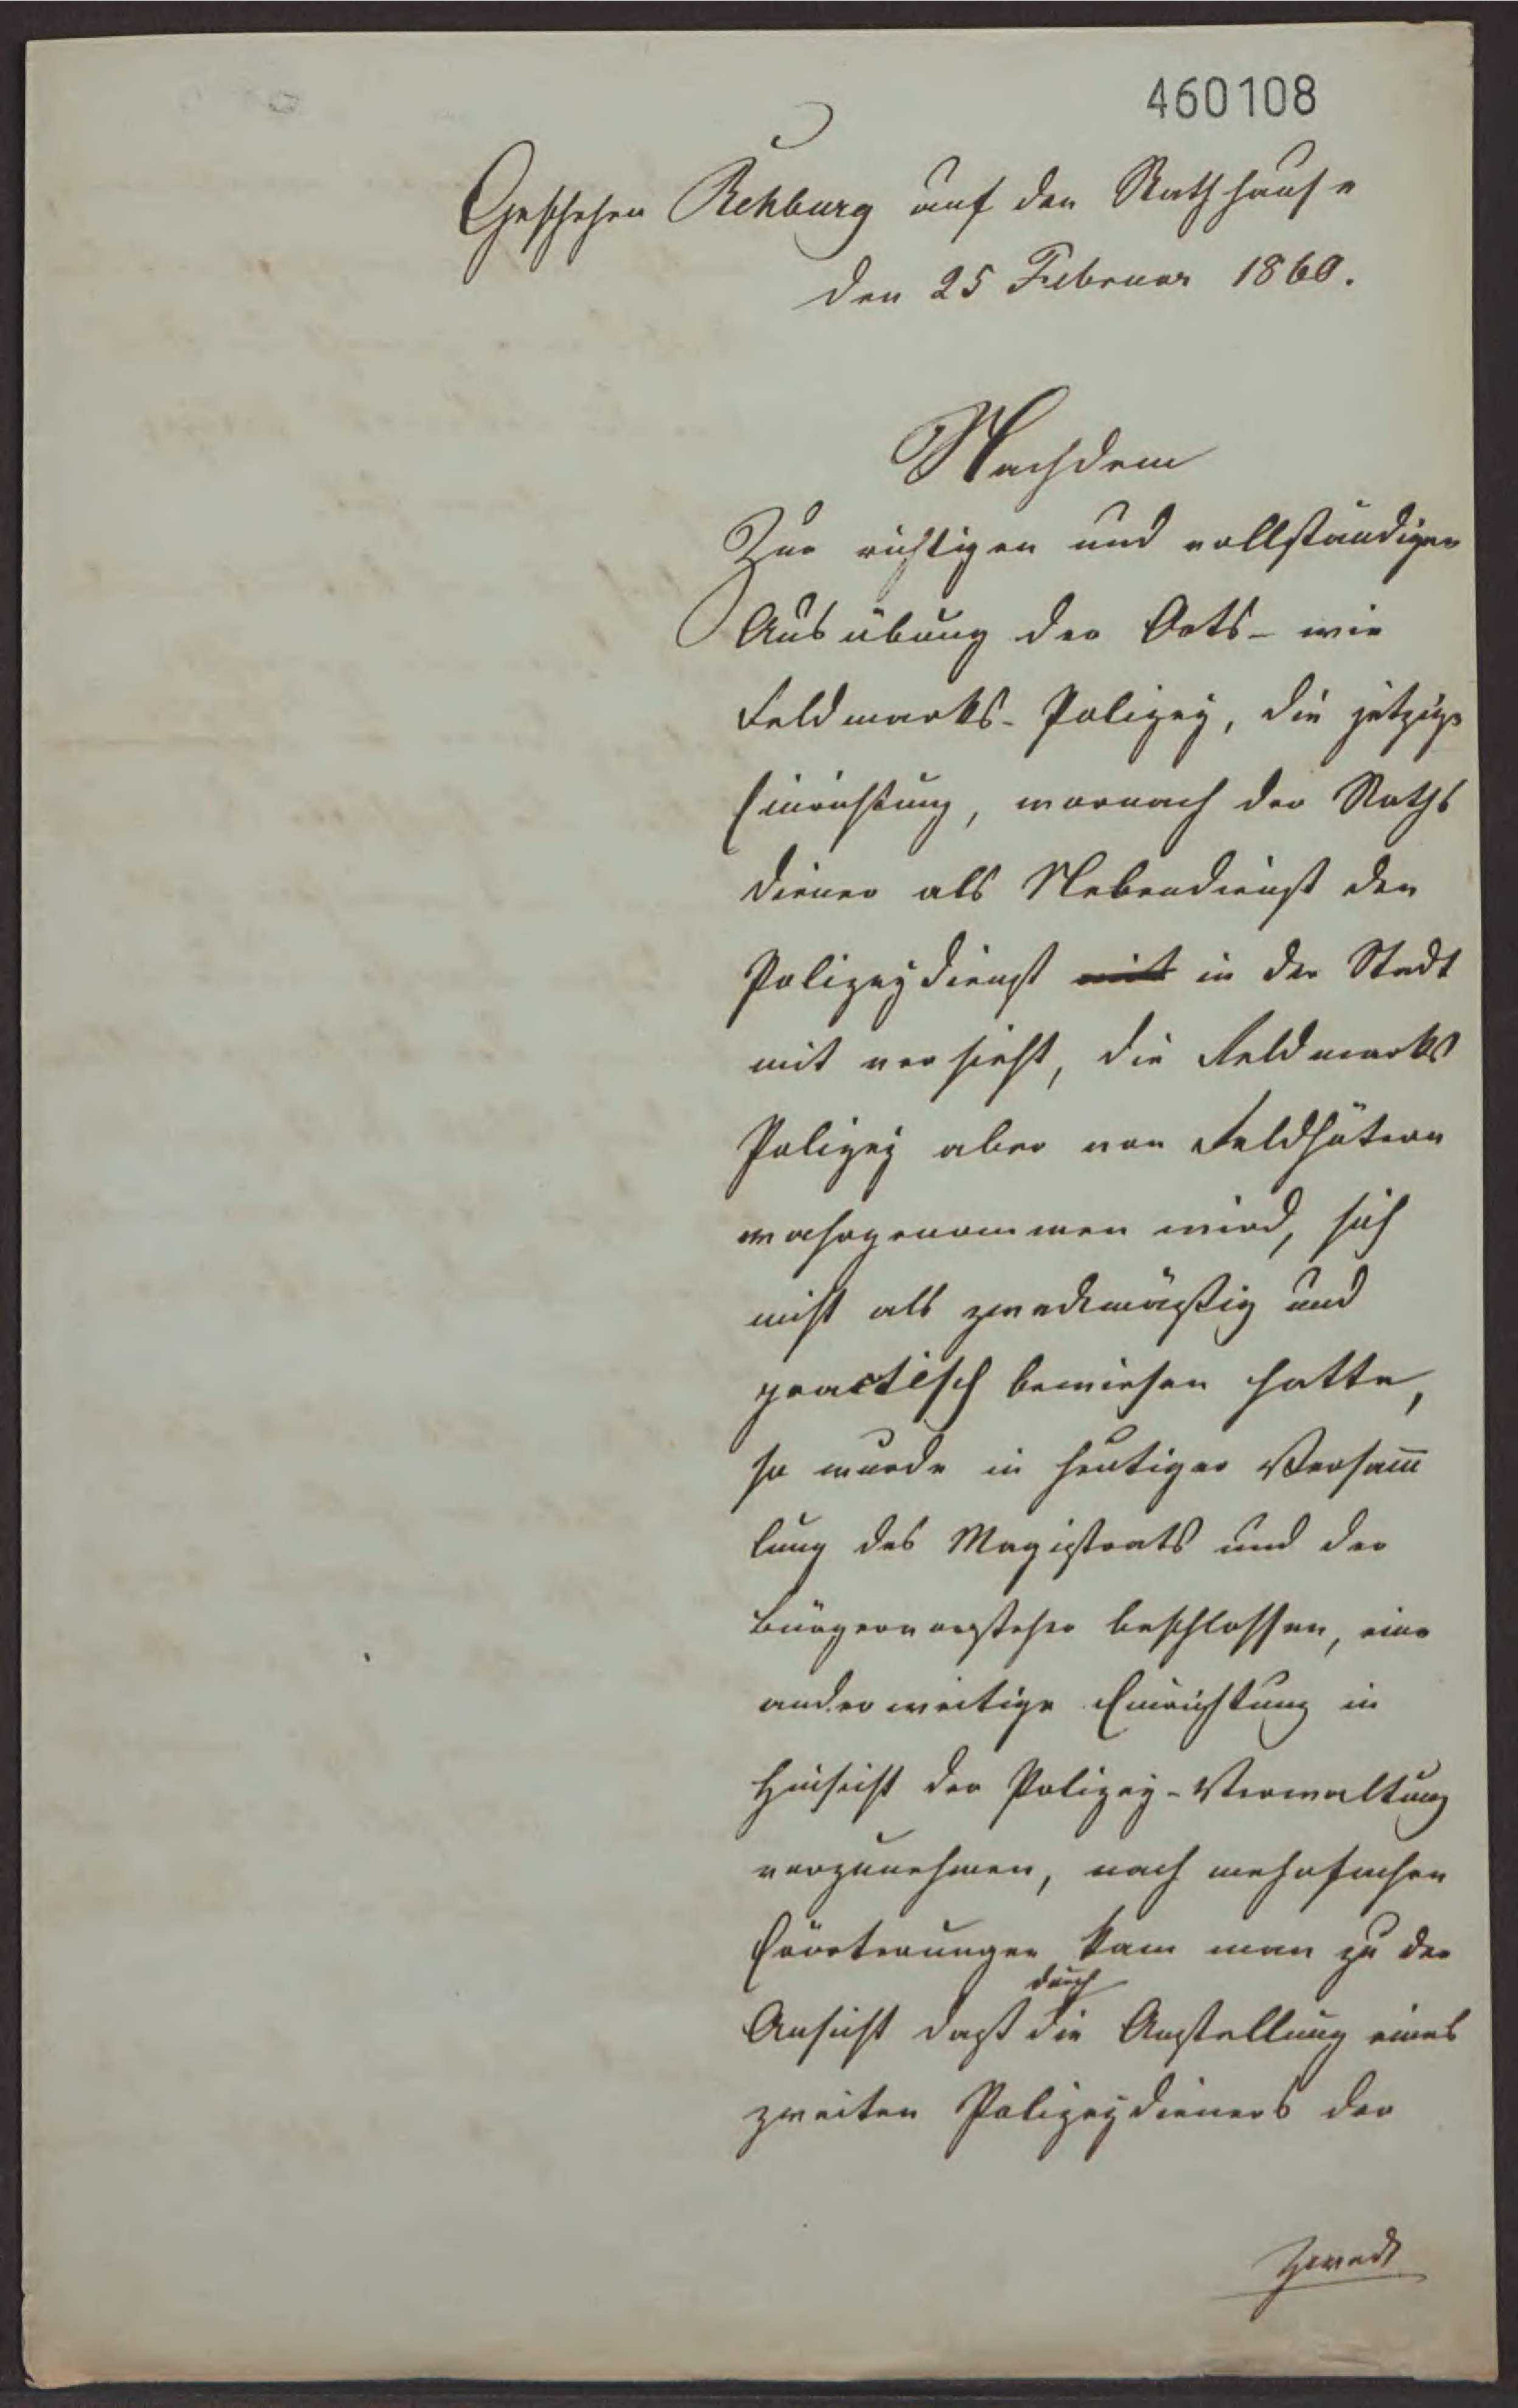 460108
Geschehen Rehburg auf den Rathhause
den 25 Februar 1860.
Nachdem
Zur richtigen und vollständigen
Ausübung der Orts- wie
Feldmarks-Polizey, die jetzige
Einrichtung, wornach der Raths
diener als Nebendienst den
Polizeydienst mit in der Stadt
mit versieht, die Feldmarks
Polizey aber von Feldhütern
wahrgenommen wird, sich
nicht als zweckmäßig und
practisch bewiesen hatte,
so wurde in heutiger Versam̅
lung des Magistrats und der
Bürgervorsteher beschlossen, eine
anderweitige Einrichtung in
Hinsicht der Polizey-Verwaltung
vorzunehmen, nach mehrfachen
Erörterungen kam man zu der
durch
Ansicht daß die Anstellung eines
zweiten Polizeydieners der
Zweck